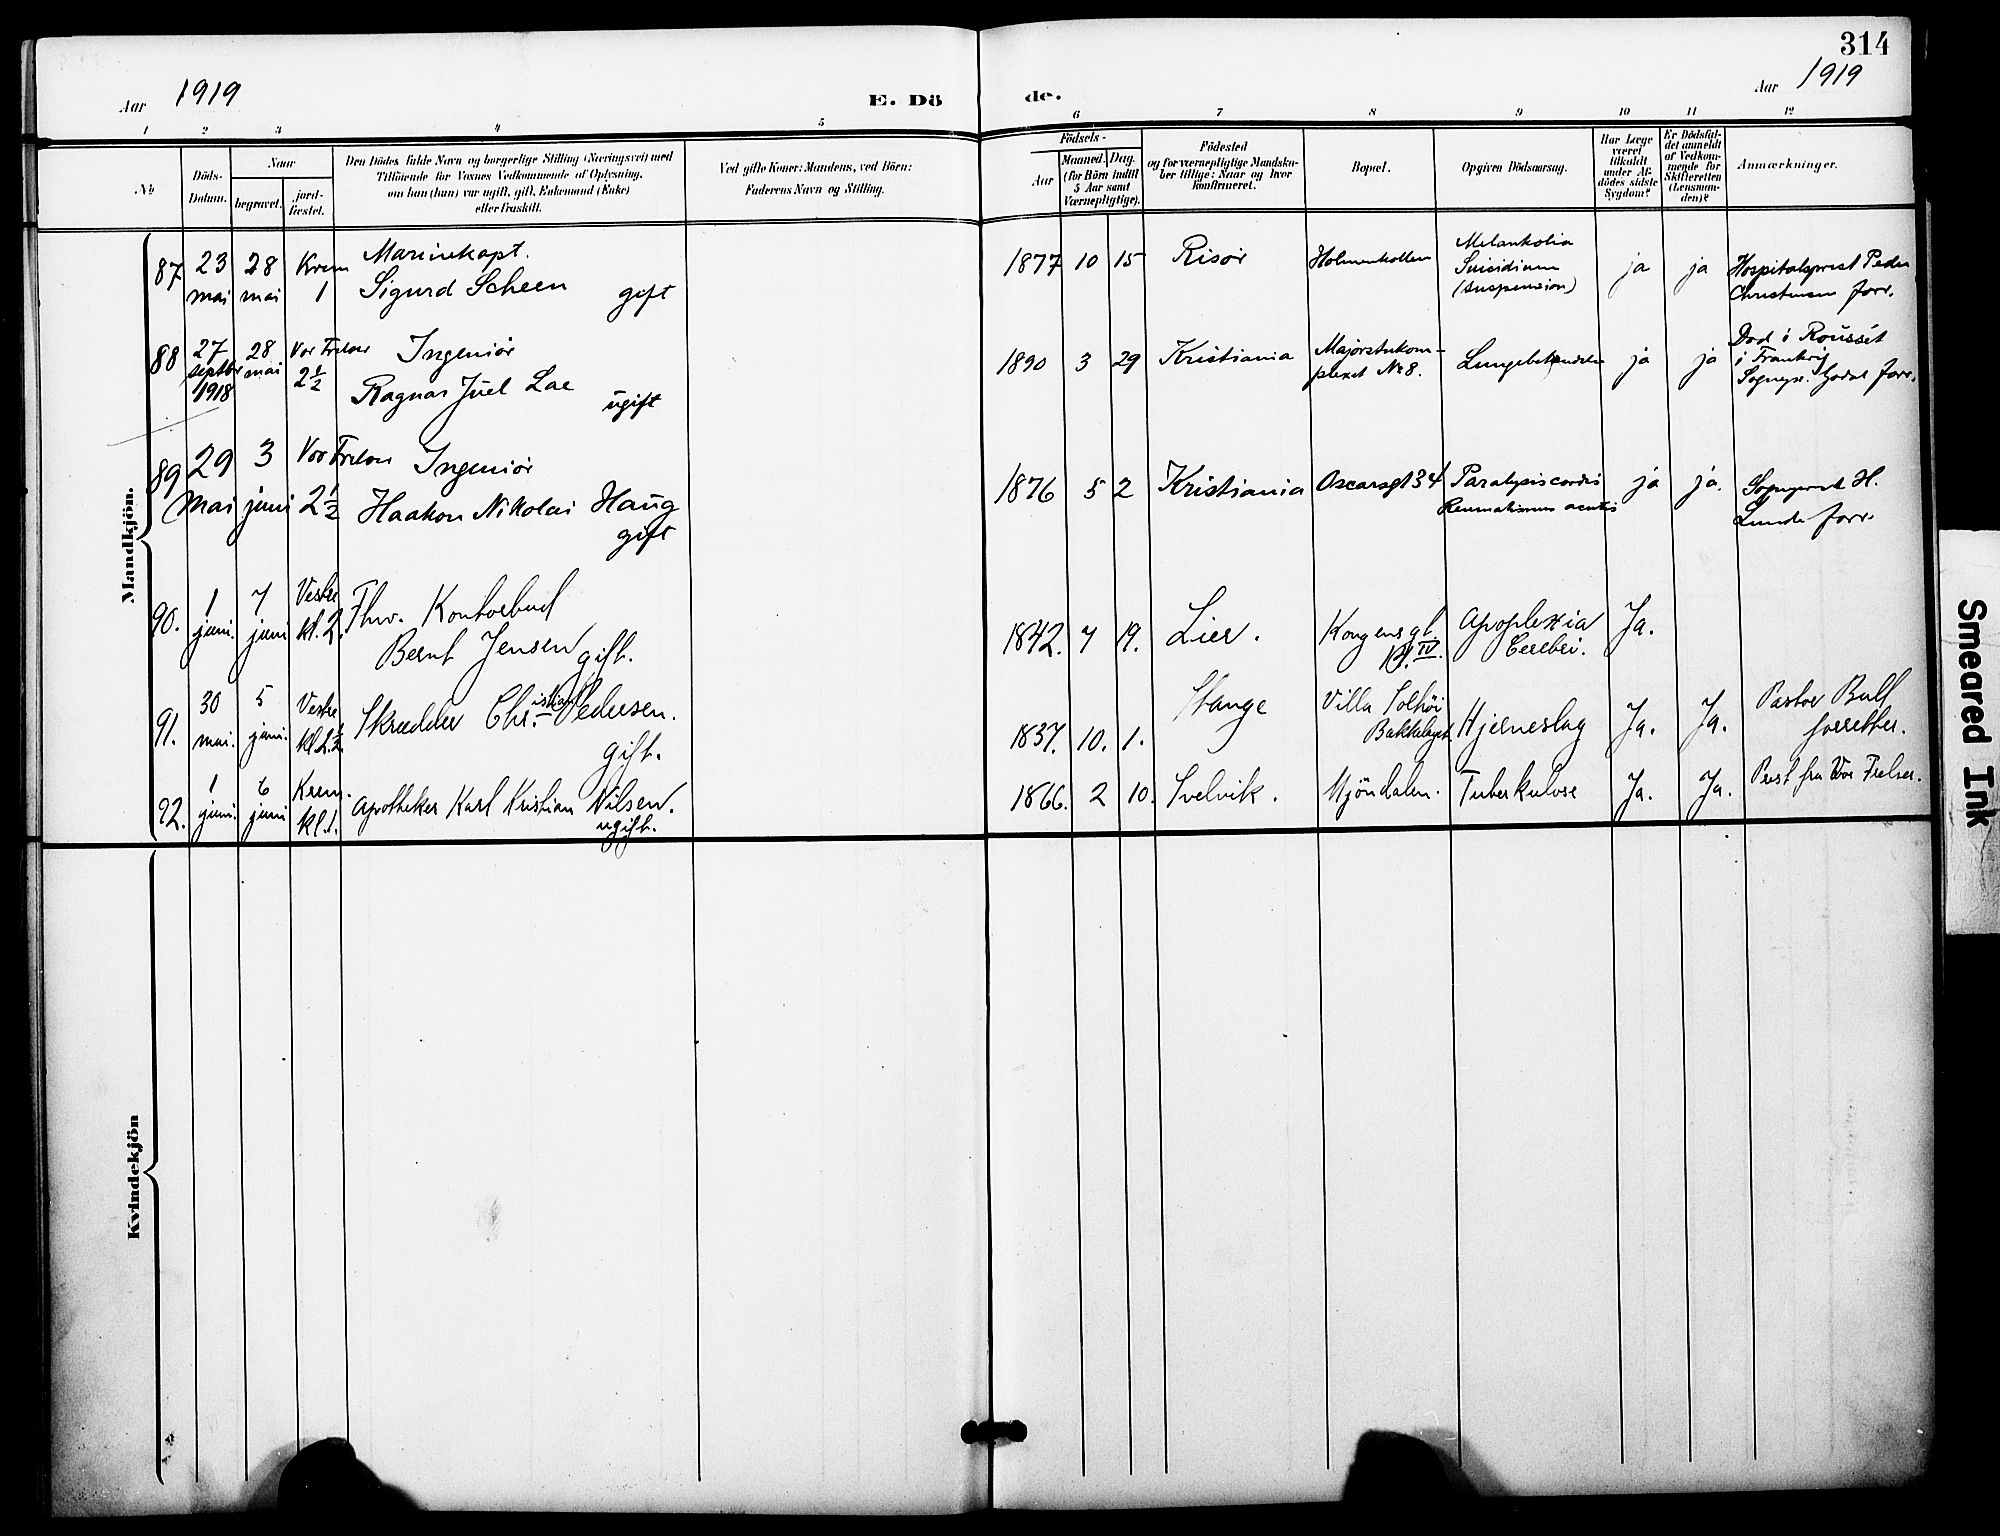 314
Aar 1919 E. Dö de. Aar 1919
1 2 3 4 5 6 7 8 9 10 11 12
№ Döds-Datum. Naar begravet. jord-fæstet. Den Dödes fulde Navn og borgerlige Stilling (Næringsvei) med Tilföiende for Voxnes Vedkommende af Oplysning, om han (hun) var ugift, gift, Enkemand (Enke) eller fraskilt. Ved gifte Koner: Mandens, ved Börn: Faderens Navn og Stilling. Födsels- Aar Maaned. Dag. (for Börn indtil 5 Aar samt Værnepligtige). Födested og for værnepligtige Mandskaber tillige: Naar og hvor konfirmeret. Bopæl. Opgiven Dödsaarsag. Har Læge været tilkaldt under Afdödes sidste Sygdom? Er Dödsfaldet anmeldt af Vedkommende for Skifteretten (Lensmanden)? Anmærkninger.
Mandkjön.
87 23 mai 28 mai Krem 1 Marinekapt. Sigurd Scheen gift 1877 10 15 Risör Holmenkollen Melankolia Suicidium (suspension) ja ja Hospitalsprest Peder Christensen forr.
88 27 septbr 1918 28 mai Vor Frelser 2½ Ingeniör Ragnar Juel Lae ugift 1890 3 29 Kristiania Majorstukomplexet No 8. Lungebetændelse ja ja Död i Rousset i Frankrig Sognepr. forr.
89 29 mai 3 juni Vor Frelser 2½ Ingeniör Haakon Nikolai Haug gift 1876 5 2 Kristiania Oscarsgt 34 Paralysis cordis Reumatismus acutus ja ja. Sogneprest H. Lunde forr.
90. 1 juni. 7 juni Vestre kl. 2. Fhv. Kontorbud Bernt Jensen gift. 1842. 7 19. Lier. Kongensgt. IV. Apoplexia Cerebri. Ja.
91. 30 mai. 5 juni. Vestre kl. 2.½ Skrædder Christian Pedersen. gift. 1837. 10. 1. Stange Villa Solhöi Bakkelaget Hjerneslag Ja. Ja. Pastor Bull forrettet.
92. 1 juni. 6 juni Krem. kl. 1. Apotheker Karl Kristian Nilsen. ugift. 1866. 2 10. Svelvik. Mjöndalen. Tuberkulose Ja. Ja. Prest fra Vor Frelser.
Kvindekjön
Smeared Ink